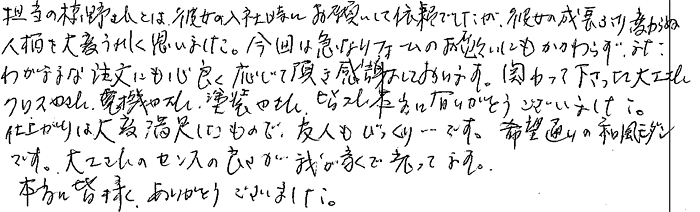 担当の椋野さんとは、彼女の入社時にお願いして依頼でしたが、彼女の成長ぶり変わらぬ
人柄を大変うれしく思いました。今回は急なリフォームのお願いにもかかわらず、また
わがままな注文にも心良く応じて頂き感謝しております。関わって下さった大工さん
クロスやさん、電機やさん、塗装やさん、皆さん本当に有りがとうございました。
仕上がりは大変満足したもので、友人もびっくり…です。希望通りの和風モダン
です。大工さんのセンスの良さが我が家で光ってます。
本当に皆様、ありがとうございました。